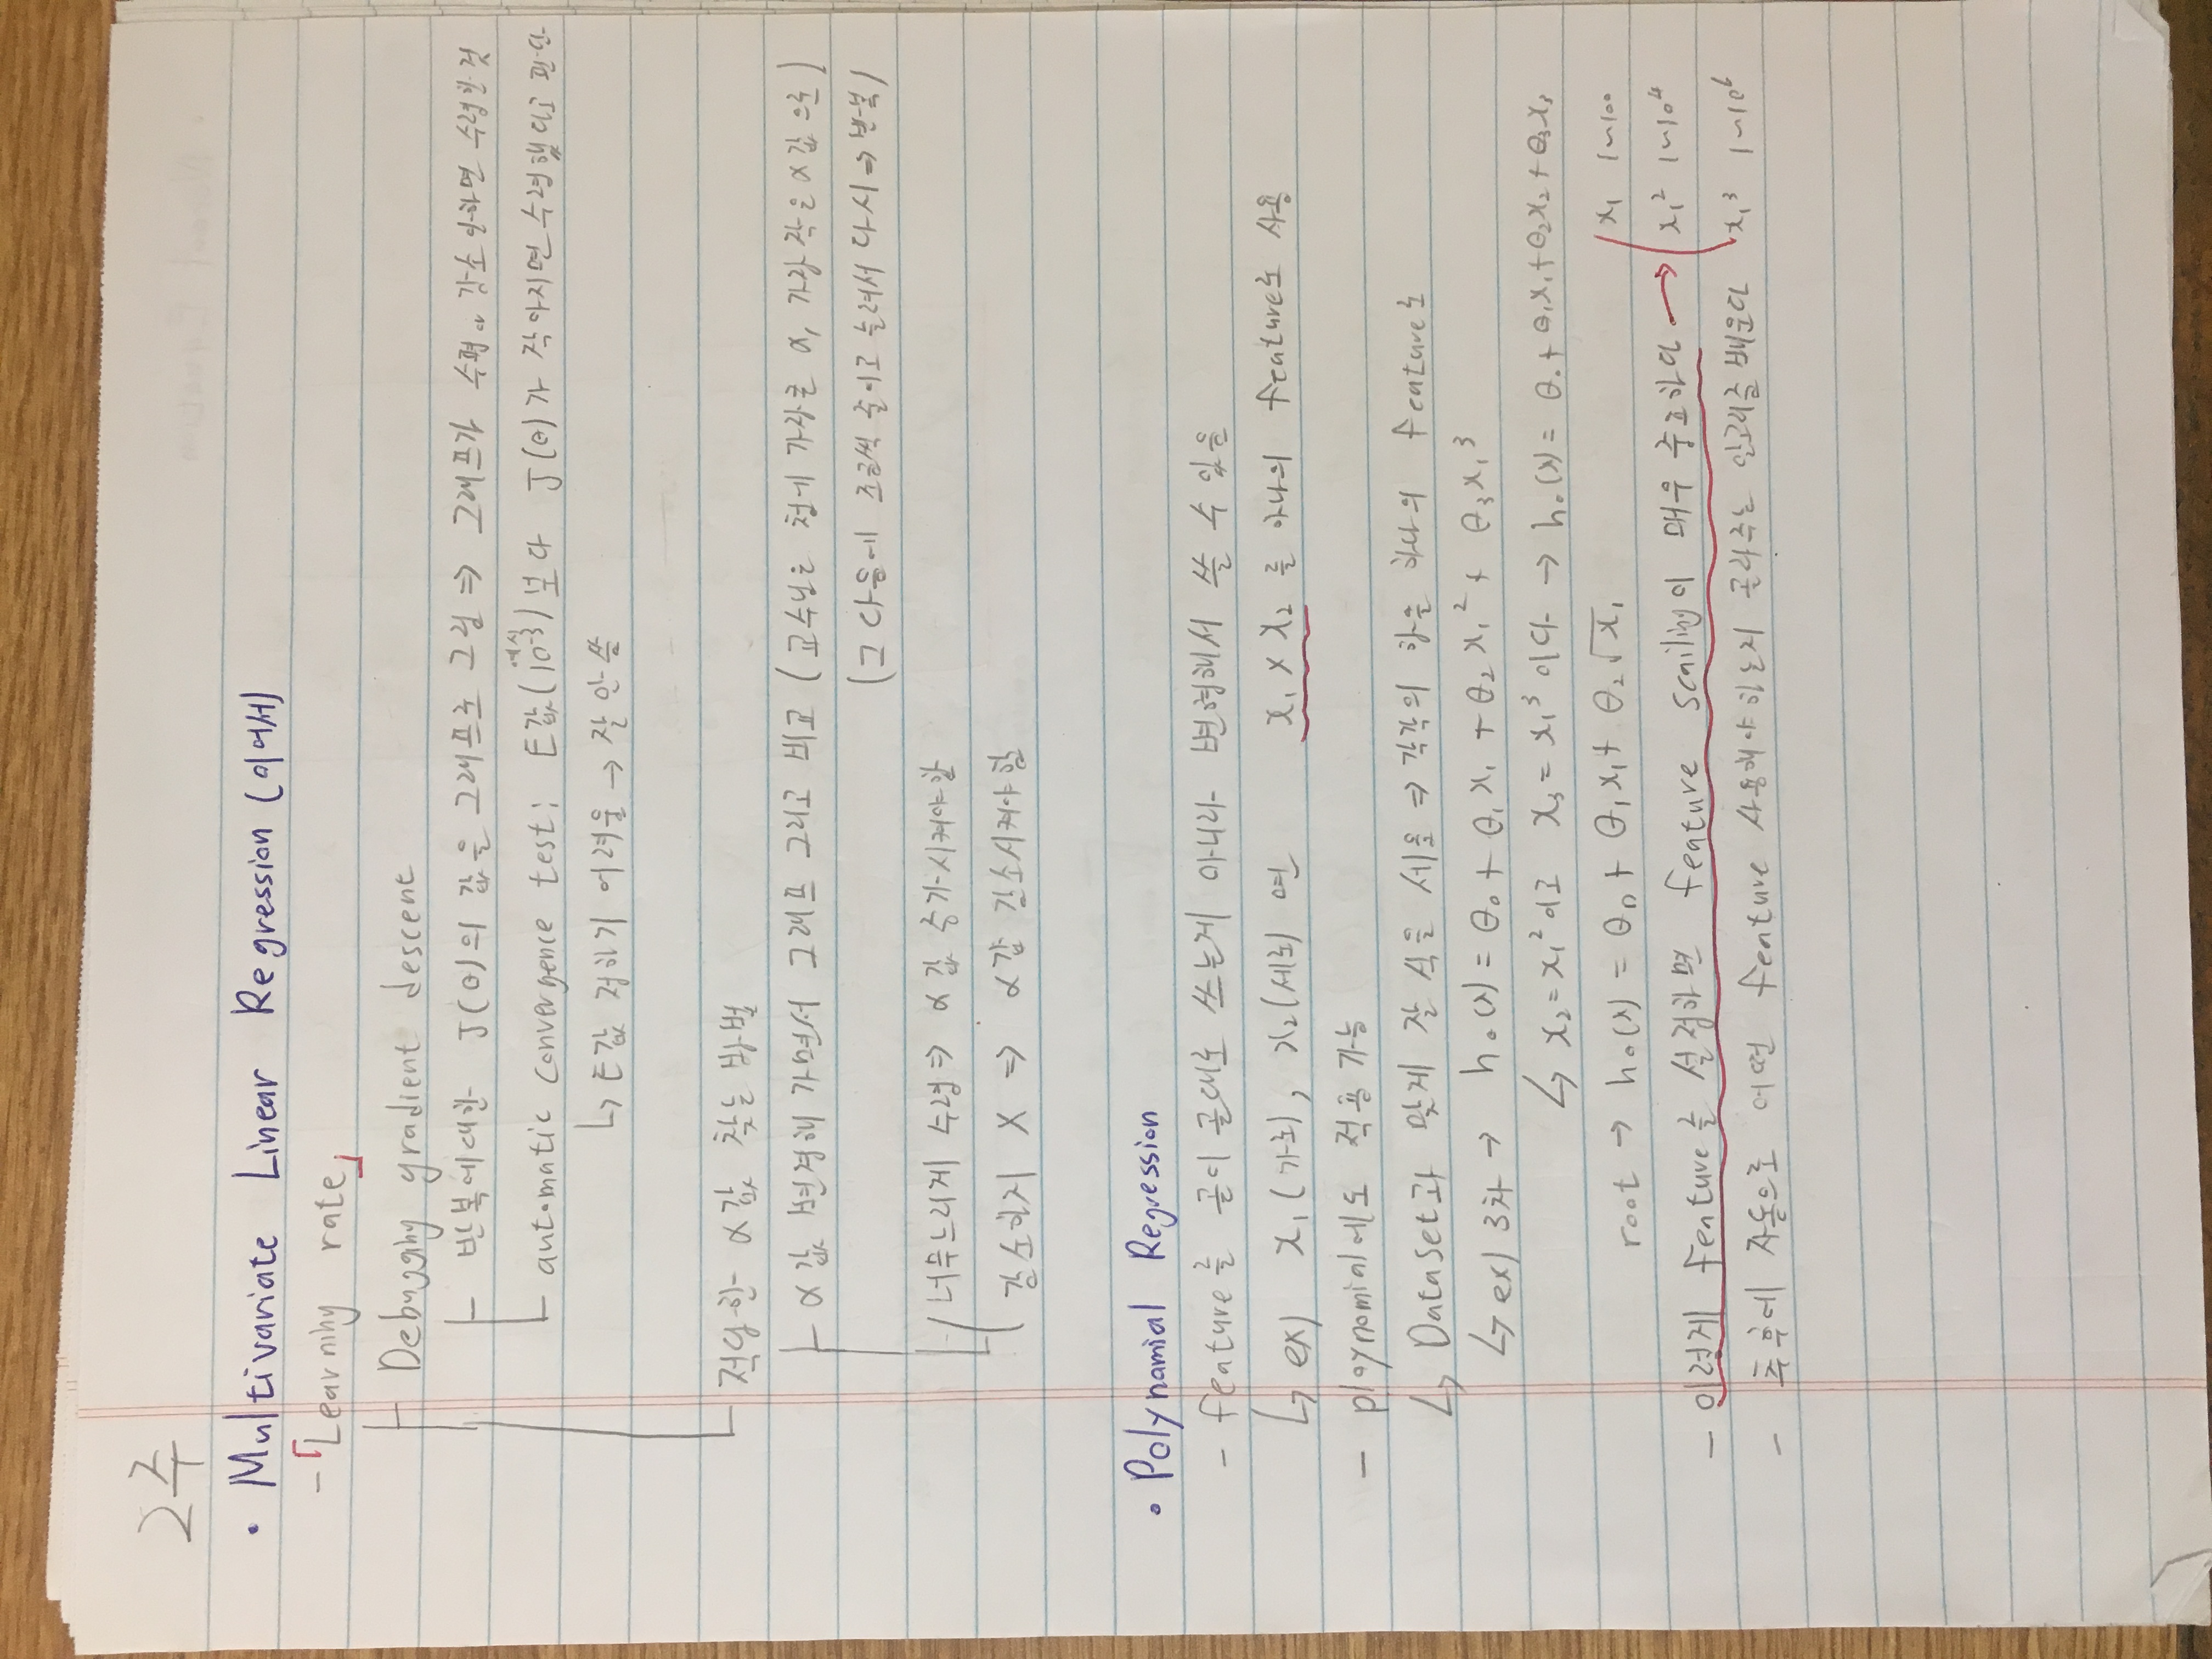 2주
• Multivariate Linear Regression (이어서)
- 「Learning rate」
Debugging gradient descent
반복에대한 J(θ)의 값을 그래프로 그림 ⇒ 그래프가 수평 감소 안하면 수렴한 것
예시
automatic convergence test: E값(10⁻³)보다 J(θ)가 작아지면 수렴했다고 판단
↳ E값 정하기 어려움 → 잘 안 씀
적당한 α값 찾는 방법
α값 변경해 가면서 그래프 그리고 비교 (교수님은 첨에 가장큰 α, 가장 작은 α값으로)
(그 다음에 조금씩 줄이고 늘려서 다시 ⇒ 반복)
너무느리게 수렴 ⇒ α값 증가시켜야함
감소하지 X ⇒ α값 감소시켜야함
• Polynamial Regression
- feature를 곧이 곧대로 쓰는게 아니라 변형해서 쓸 수 있음
↳ ex) x₁(가로), x₂(세로) 면 x₁ × x₂ 를 하나의 feature로 사용
- ploynomial에도 적용 가능
↳ Dataset과 맞게 잘 식을 세움 ⇒ 각각의 항을 하나의 feature로
↳ ex) 3차 → h₀(x) = θ₀ + θ₁x₁ + θ₂x₁² + θ₃x₁³
↳ x₂=x₁²이고 x₃=x₁³이다 → h₀(x) = θ₀+θ₁x₁+θ₂x₂+θ₃x₃
root → h₀(x) = θ₀ + θ₁x₁ + θ₂√x₁
x₁ 1~100
- 이렇게 feature를 설정하면 feature scailing이 매우 중요하다 → x₁² 1~10⁴
- 추후에 자동으로 어떤 feature 사용해야 하는지 골라주는 알고리즘 배운다 x₁³ 1~10⁶